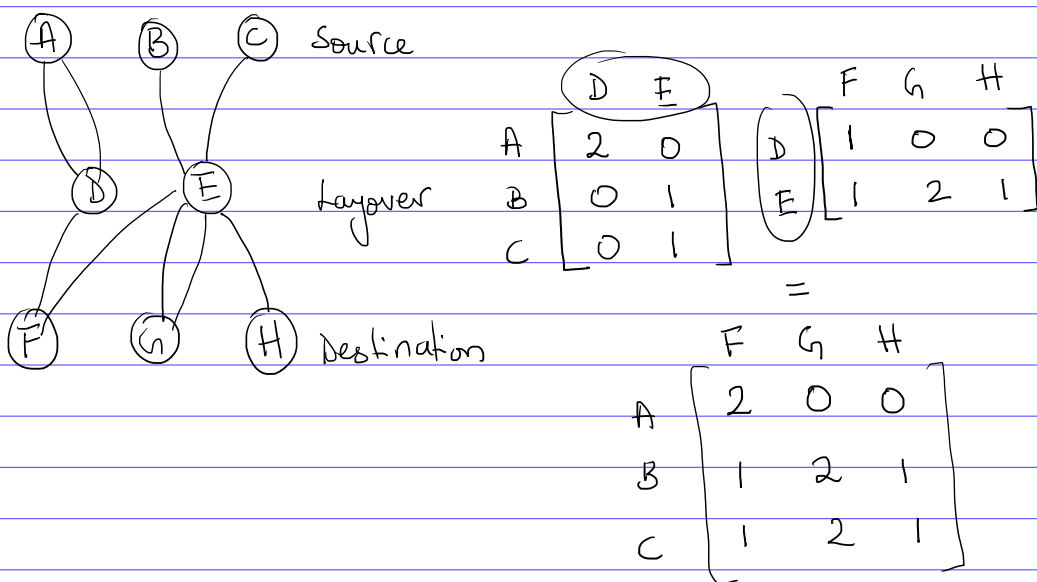 A B C Source
D E Layover
F G H Destination
D E
A 2 0
B 0 1
C 0 1
F G H
D 1 0 0
E 1 2 1
=
F G H
A 2 0 0
B 1 2 1
C 1 2 1